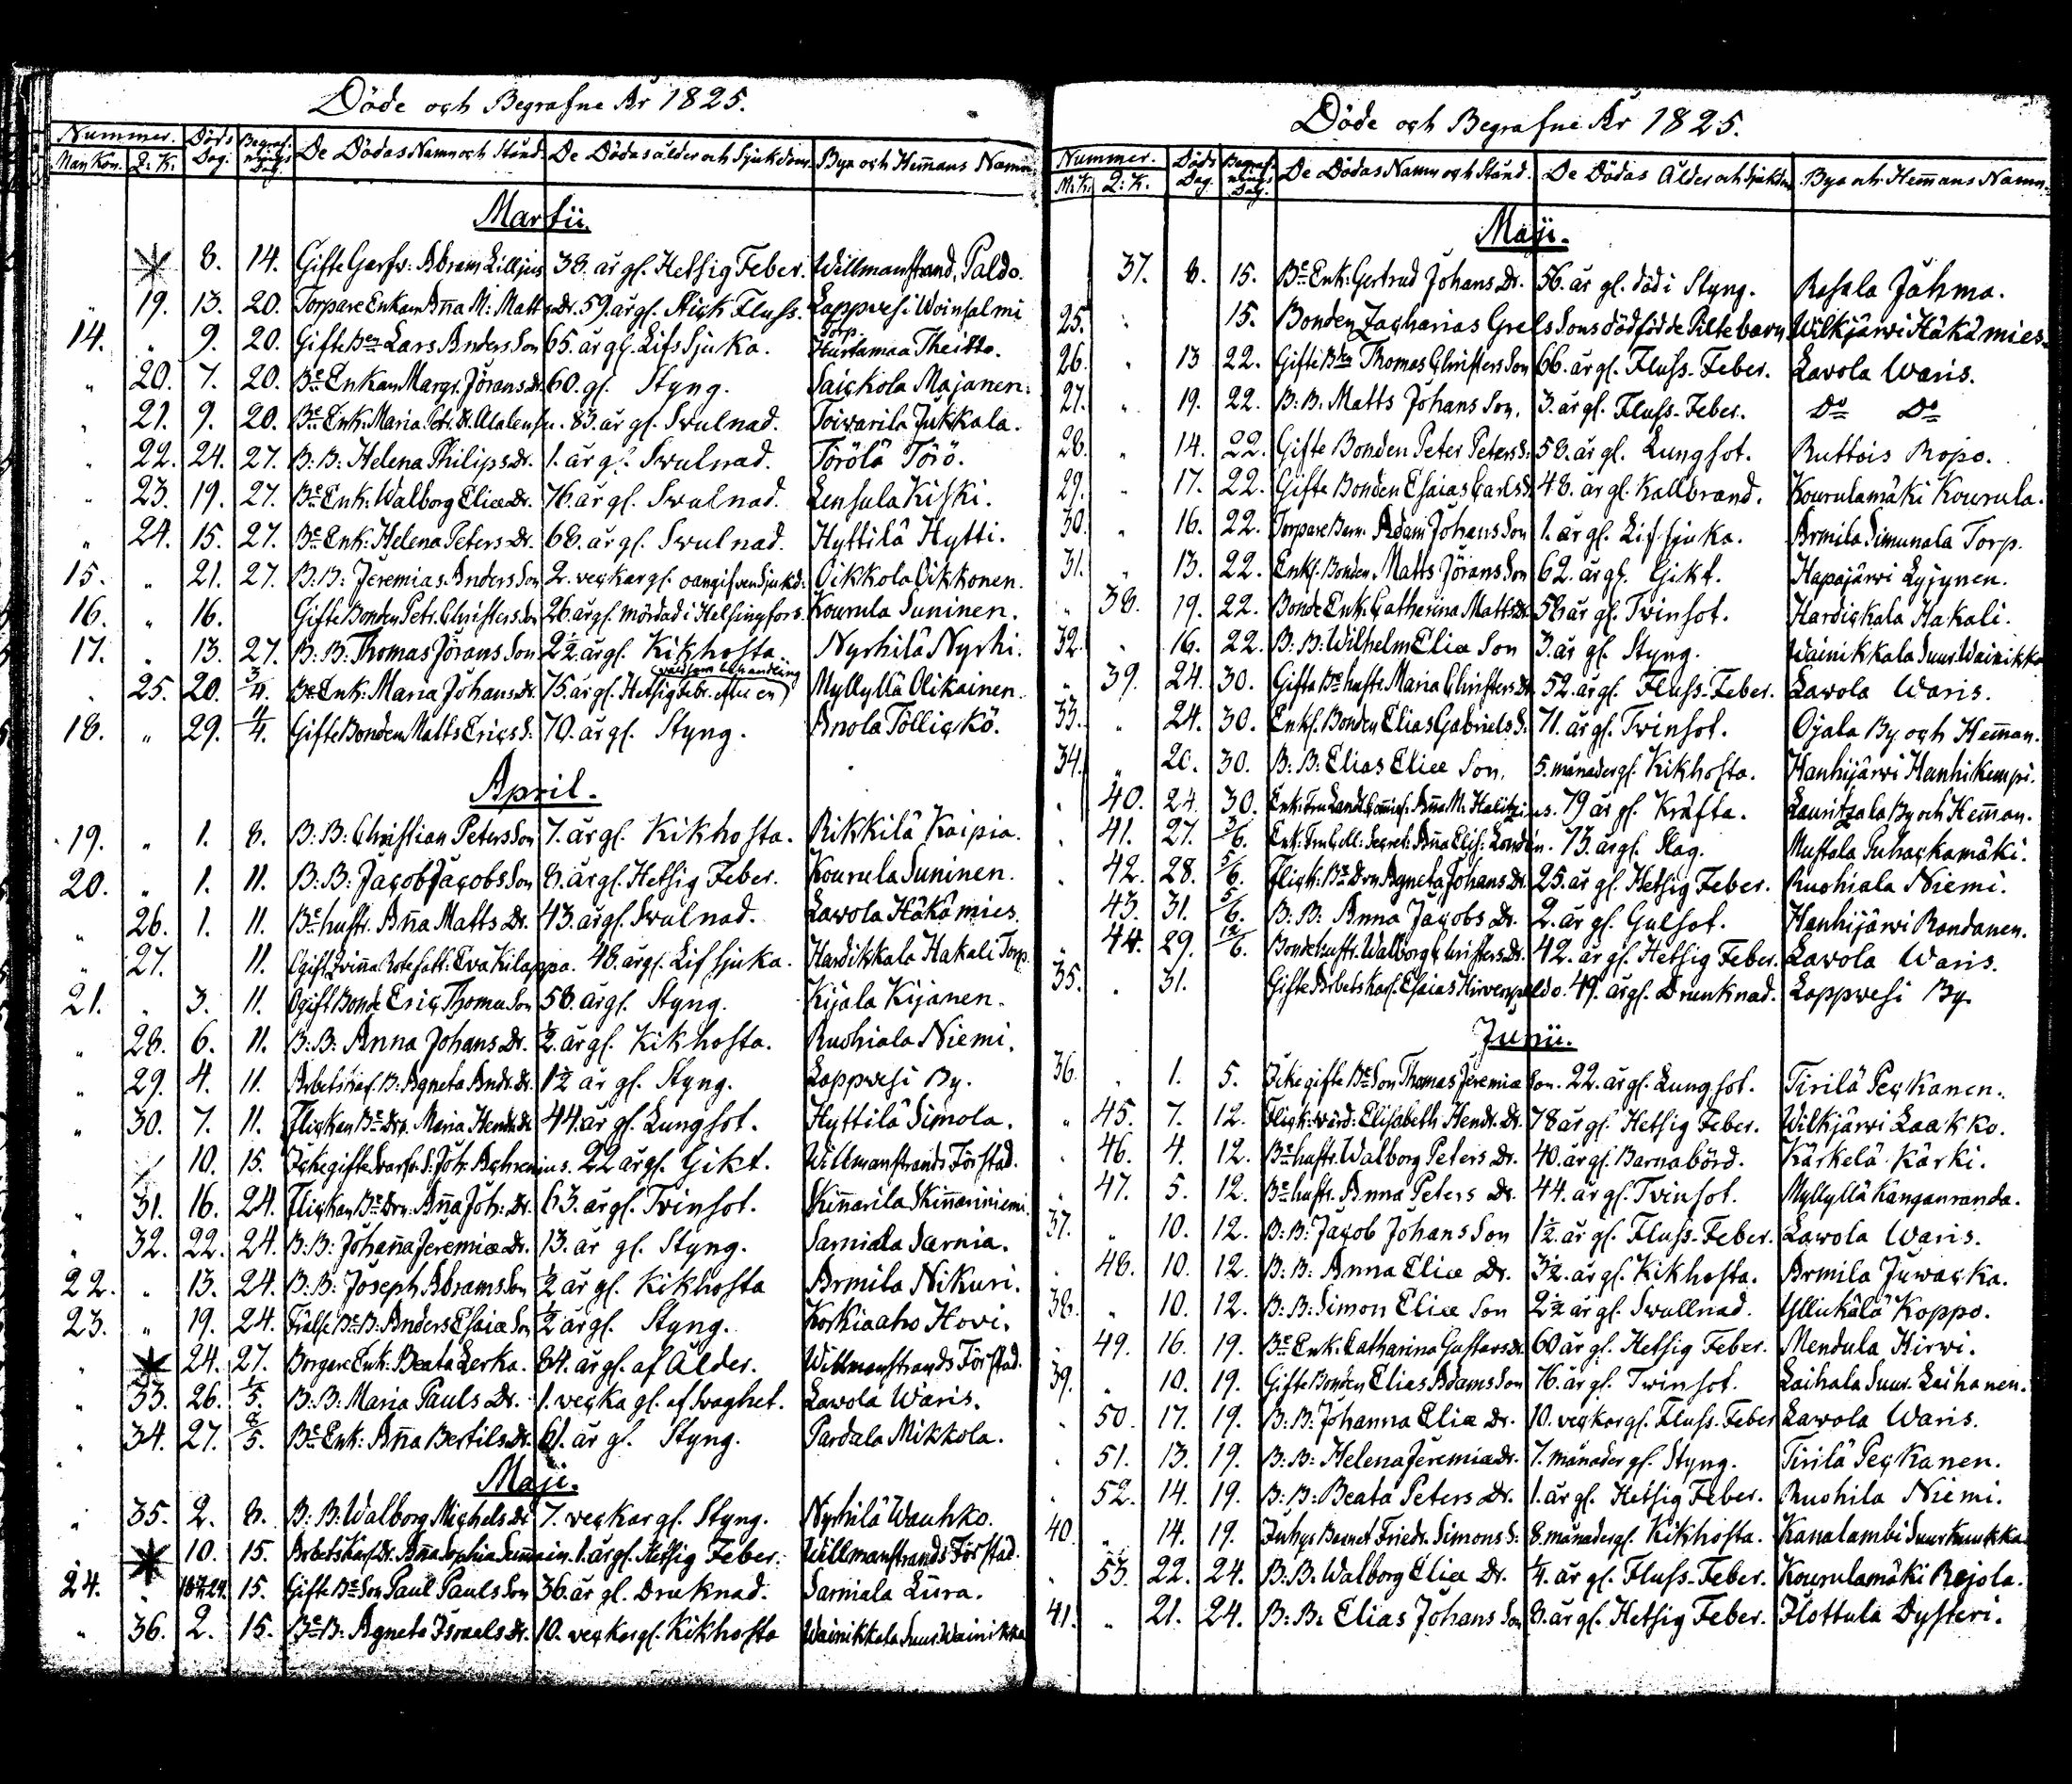 Döde och Begrafne År 1825.
Nummer. Döds Dag. Begrafnings Dag. De Dödas Namn och Stånd. De Dödas ålder och Sjukdom. Bya och Hemans Namn
Man Kön. Q: K.
Martii.
8. 14. Gifte Garfv: Abram Lilljus 38. år gl. Hetsig Feber. Willmanstrand, Paldo.
" 19. 13. 20. Torpare Enkan Aña M: Matts Dr. 59. år gl. Stick Fluss. Lappvesi Woinsalmi
14. " 9. 20. Gifte Bon Lars Anders Son 65. år gl. Lifs Sjuka. Torp. Hurtamaa Theitto.
" 20. 7. 20. Be Enkan Margr. Jörans Dr. 60. gl. Styng. Saickola Majanen.
" 21. 9. 20. Be Enk: Maria Petr. Dr. 83. år gl. Swulnad. Toiwarila Jukkala.
" 22. 24. 27. B: B: Helena Philips Dr. 1. år gl. Swulnad. Törölä Törö.
" 23. 19. 27. Be Enk: Walborg Eliæ Dr. 76. år gl. Swulnad. Lensula Kiski.
" 24. 15. 27. Be Enk: Helena Peters Dr. 68. år gl. Swulnad. Hyttilä Hytti.
15. " 21. 27. B: B: Jeremias Anders Son 2. veckar gl. oangifven Sjukd: Oikkola Oikkonen.
16. " 16. Gifte Bonden Petr. Christers Son 26. år gl. mördad i Helsingfors. Kourula Suninen.
17. " 13. 27. B: B: Thomas Jörans Son 2½ år gl. Kikhosta. Nyrhilä Nyrhi.
. 25. 20. 3/4. Be Enk: Maria Johans Dr. 75. år gl. Hetsig febr. efter en våldsam behandling Myllyllä Olikainen.
18. " 29. 4/4. Gifte Bonden Matts Erics S: 70. år gl. Styng. Anola Töllickö.
April.
19. " 1. 8. B: B: Christian Peters Son 7. år gl. Kikhosta. Rikkilä Kaipia.
20. " 1. 11. B: B: Jacob Jacobs Son 8. år gl. Hetsig Feber. Kourula Suninen.
" 26. 1. 11. Be hustr. Aña Matts Dr. 43. år gl. Swulnad. Lavola Häkämies.
" 27. 11. Ogift Qviña Rotefatt: Eva Kilappa. 48. år gl. Lifsjuka. Hardikkala Hakali Torp.
21. . 3. 11. Ogift Bonde Eric Thomæ Son 58. år gl. Styng. Kijala Kijanen.
" 28. 6. 11. B: B: Anna Johans Dr. ½. år gl. Kikhosta. Ruohiala Niemi.
" 29. 4. 11. Arbetskarl. B. Agneta Andr. dr. 1½ år gl. Styng. Lappvesi By.
" 30. 7. 11. Flickan Be Drn. Maria Hendr. Dr 44. år gl. Lungsot. Hyttilä Simola.
10. 15. Icke gifte Svarfv. S: Joh. Achrenius. 22 år gl. Gikt. Willmanstrands Förstad.
" 31. 16. 24. Flickan Be Drn: Aña Joh: Dr. 63. år gl. Tvinsot. Skiñarila Skiñariniemi.
" 32. 22. 24. B: B: Johaña Jeremiæ Dr. 13. år gl. Styng. Sarniala Sarnia.
22. " 13. 24. B: B: Joseph Abrams Son ½ år gl. Kikhosta Armila Nikuri.
23. " 19. 24. Frälse Be B: Anders Esaiæ Son ½ år gl. Styng. Korkiaaho Hovi.
24. 27. Borgare Enk: Beata Lerka. 84. år gl. af Ålder. Willmanstrands Förstad.
" 33. 26. 1/5. B: B: Maria Pauls Dr. 1. vecka gl. af Svaghet. Lavola Waris.
" 34. 27. 8/5. Be Enk: Aña Bertils Dr. 61. år gl. Styng. Pardala Mikkola.
Maji.
" 35. 2. 8. B: B: Walborg Michels Dr 7. veckar gl. Styng. Nyrhilä Wauhko.
10. 15. Arbets Karl Dr. Aña Sophia 1. år gl. Hetsig Feber. Willmanstrands Förstad.
24. . 15. Gifte Be Son Paul Pauls Son 36. år gl. Druknad. Sarniala Lura.
" 36. 2. 15. Be B: Agneta Israels Dr. 10. veckar gl. Kikhosta Wainikkala Suur Wainikka
Döde och Begrafne År 1825.
Nummer. Döds Dag. Begrafnings Dag. De Dödas Namn och Stånd. De Dödas Ålder och Sjukdom Bya och Hemans Namn.
M: K: Q: K.
Maji.
37. 8. 15. Be Enk: Gertrud Johans Dr. 56. år gl. död i Styng. Rasala Jähma.
25. " 15. Bonden Zacharias Grels Sons dödfödde Piltebarn Wilkjärvi Häkämies.
26. " 13 22. Gifte Bden Thomas Christers Son 66. år gl. Fluss-Feber. Lavola Waris.
27. " 19. 22. B: B: Matts Johans Son. 3. år gl. Fluss-Feber. Do Do
28. " 14. 22. Gifte Bonden Peter Peters S: 58. år gl. Lungsot. Ruttois Ropo.
29. " 17. 22. Gifte Bonden Esaias Carls S. 48. år gl. Kallbrand. Kourulamäki Kourula.
30. " 16. 22. Torpare Barn Adam Johans Son 1. år gl. Lifsjuka. Armila Simunala Torp.
31. " 13. 22. Enkl. Bonden Matts Jörans Son 62. år gl. Gikt. Hapajärvi Lyjynen.
" 38. 19. 22. Bonde Enk: Catherina Matts Dr. 56 år gl. Tvinsot. Hardickala Hakali.
32. " 16. 22. B: B: Wilhelm Eliæ Son 3. år gl. Styng. Wainikkala Suur Wainikka
" 39. 24. 30. Gifta Be hustr. Maria Christers Dr. 52. år gl. Fluss-Feber. Lavola Waris.
33. " 24. 30. Enkl. Bonden Elias Gabriels S. 71. år gl. Tvinsot. Ojala By och Heman.
34. " 20. 30. B: B: Elias Eliæ Son. 5. månader gl. Kikhosta. Hanhijärvi Hanhikempi.
. 40. 24. 30. Enk: Fru Aña M. Halitzius. 79 år gl. Kräfta. Lauritzala By och Heman.
. 41. 27. 3/6. Enk: Fru Aña Elis: Londén. 73. år gl. Slag. Mustola Puhackamäki.
. 42. 28. 5/6. Flick: Be Drn Agneta Johans Dr. 25. år gl. Hetsig Feber. Ruohiala Niemi.
43. 31. 5/6. B: B: Anna Jacobs Dr. 2. år gl. Gulsot. Hanhijärvi Rondanen.
" 44. 29. 12/6. Bondehustr. Walborg Christers Dr. 42. år gl. Hetsig Feber. Lavola Waris.
35. . 31. Gifte Arbets Karl. Esaias 49. år gl. Drunknad. Lappvesi By.
Junii.
36. . 1. 5. Icke gifte Be Son Thomas Jeremiæ Son. 22. år gl. Lungsot. Tirilä Peckanen.
" 45. 7. 12. Flick: värd: Elisabeth Hendr. Dr. 78 år gl. Hetsig Feber. Wilkjärvi Laakko.
. 46. 4. 12. Be hustr. Walborg Peters Dr. 40. år gl. Barnabörd. Kärkelä Kärki.
. 47. 5. 12. Be hustr. Anna Peters Dr. 44. år gl. Tvinsot. Myllyllä Kanganranda.
37. " 10. 12. B: B: Jacob Johans Son 1½. år gl. Fluss-Feber. Lavola Waris.
. 48. 10. 12. B: B: Anna Eliæ Dr. 3½. år gl. Kikhosta. Armila Juwacka.
38. " 10. 12. B: B: Simon Eliæ Son 2½ år gl. Swullnad. Yllickälä Koppo.
. 49. 16. 19. Be Enk. Catharina Gustavs dr. 60 år gl. Hetsig Feber. Mendula Hirvi.
39. " 10. 19. Gifte Bonden Elias Adams Son 76. år gl. Twinsot. Laihala Suur Laihanen.
. 50. 17. 19. B: B: Johanna Eliæ Dr. 10. veckor gl. Fluss-Feber Lavola Waris.
. 51. 13. 19. B: B: Helena Jeremiæ Dr. 7. månader gl. Styng. Tirilä Peckanen.
. 52. 14. 19. B: B: Beata Peters Dr. 1. år gl. Hetsig Feber. Ruohila Niemi.
40. " 14. 19. Inhys Barnet Friedr. Simons S: 8. månader gl. Kikhosta. Kanalambi Suur Kuukka
. 53. 22. 24. B: B: Walborg Eliæ Dr. 4. år gl. Fluss-Feber. Kourulamäki Rejola.
41. " 21. 24. B: B: Elias Johans Son 8. år gl. Hetsig Feber. Hottula Dysteri.